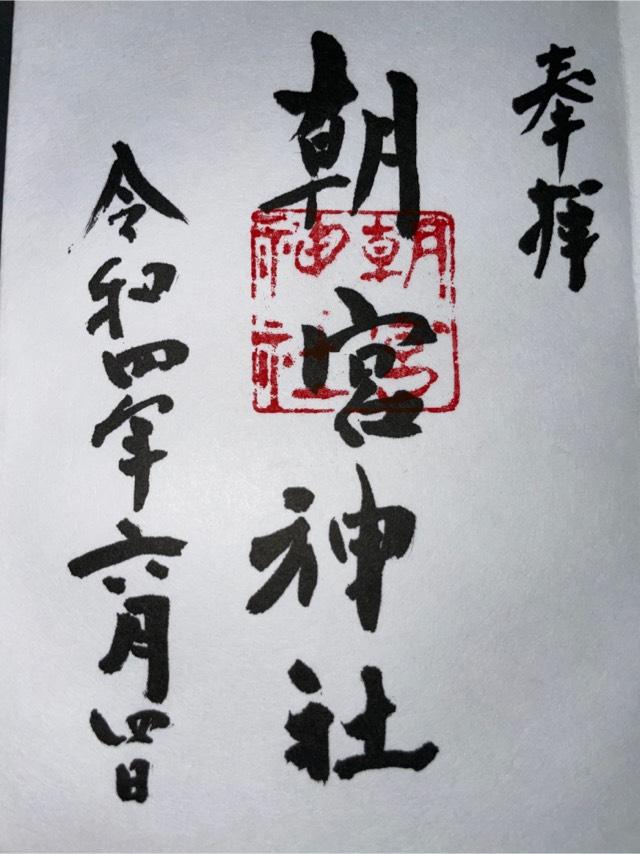 奉拝
朝宮神社
朝宮
神社
令和四年六月四日